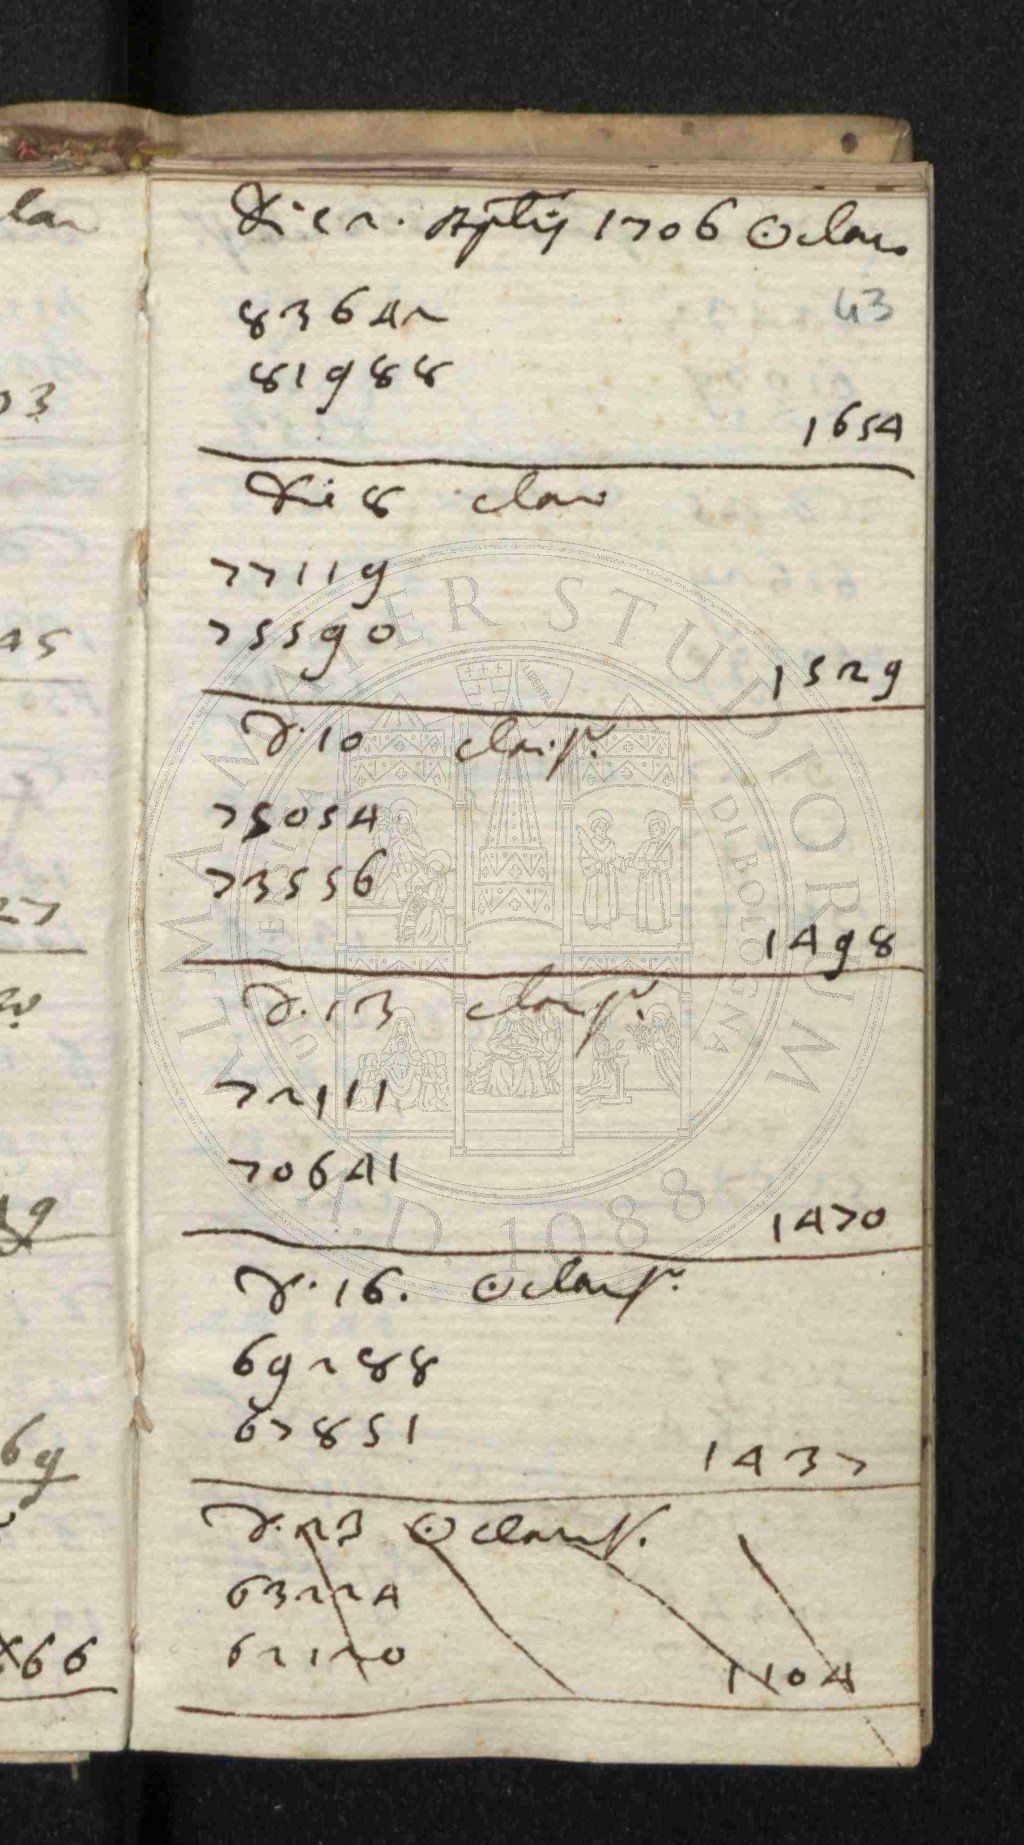 lan
03
45
27
19
69
66
Die 2. Sptis 1706 ☉ claro
43
83642
81988
1654
Die 8 claro
77119
75590
1529
D. 10 claris.
75054
73556
1498
D. 13 claris.
72111
70641
1470
D. 16. ☉ claris.
69288
67851
1437
D. 23 ☉ claris.
63224
62120
1104
ALMA MATER STUDIORUM
UNIVERSITAS DI BOLOGNA
A.D. 1088